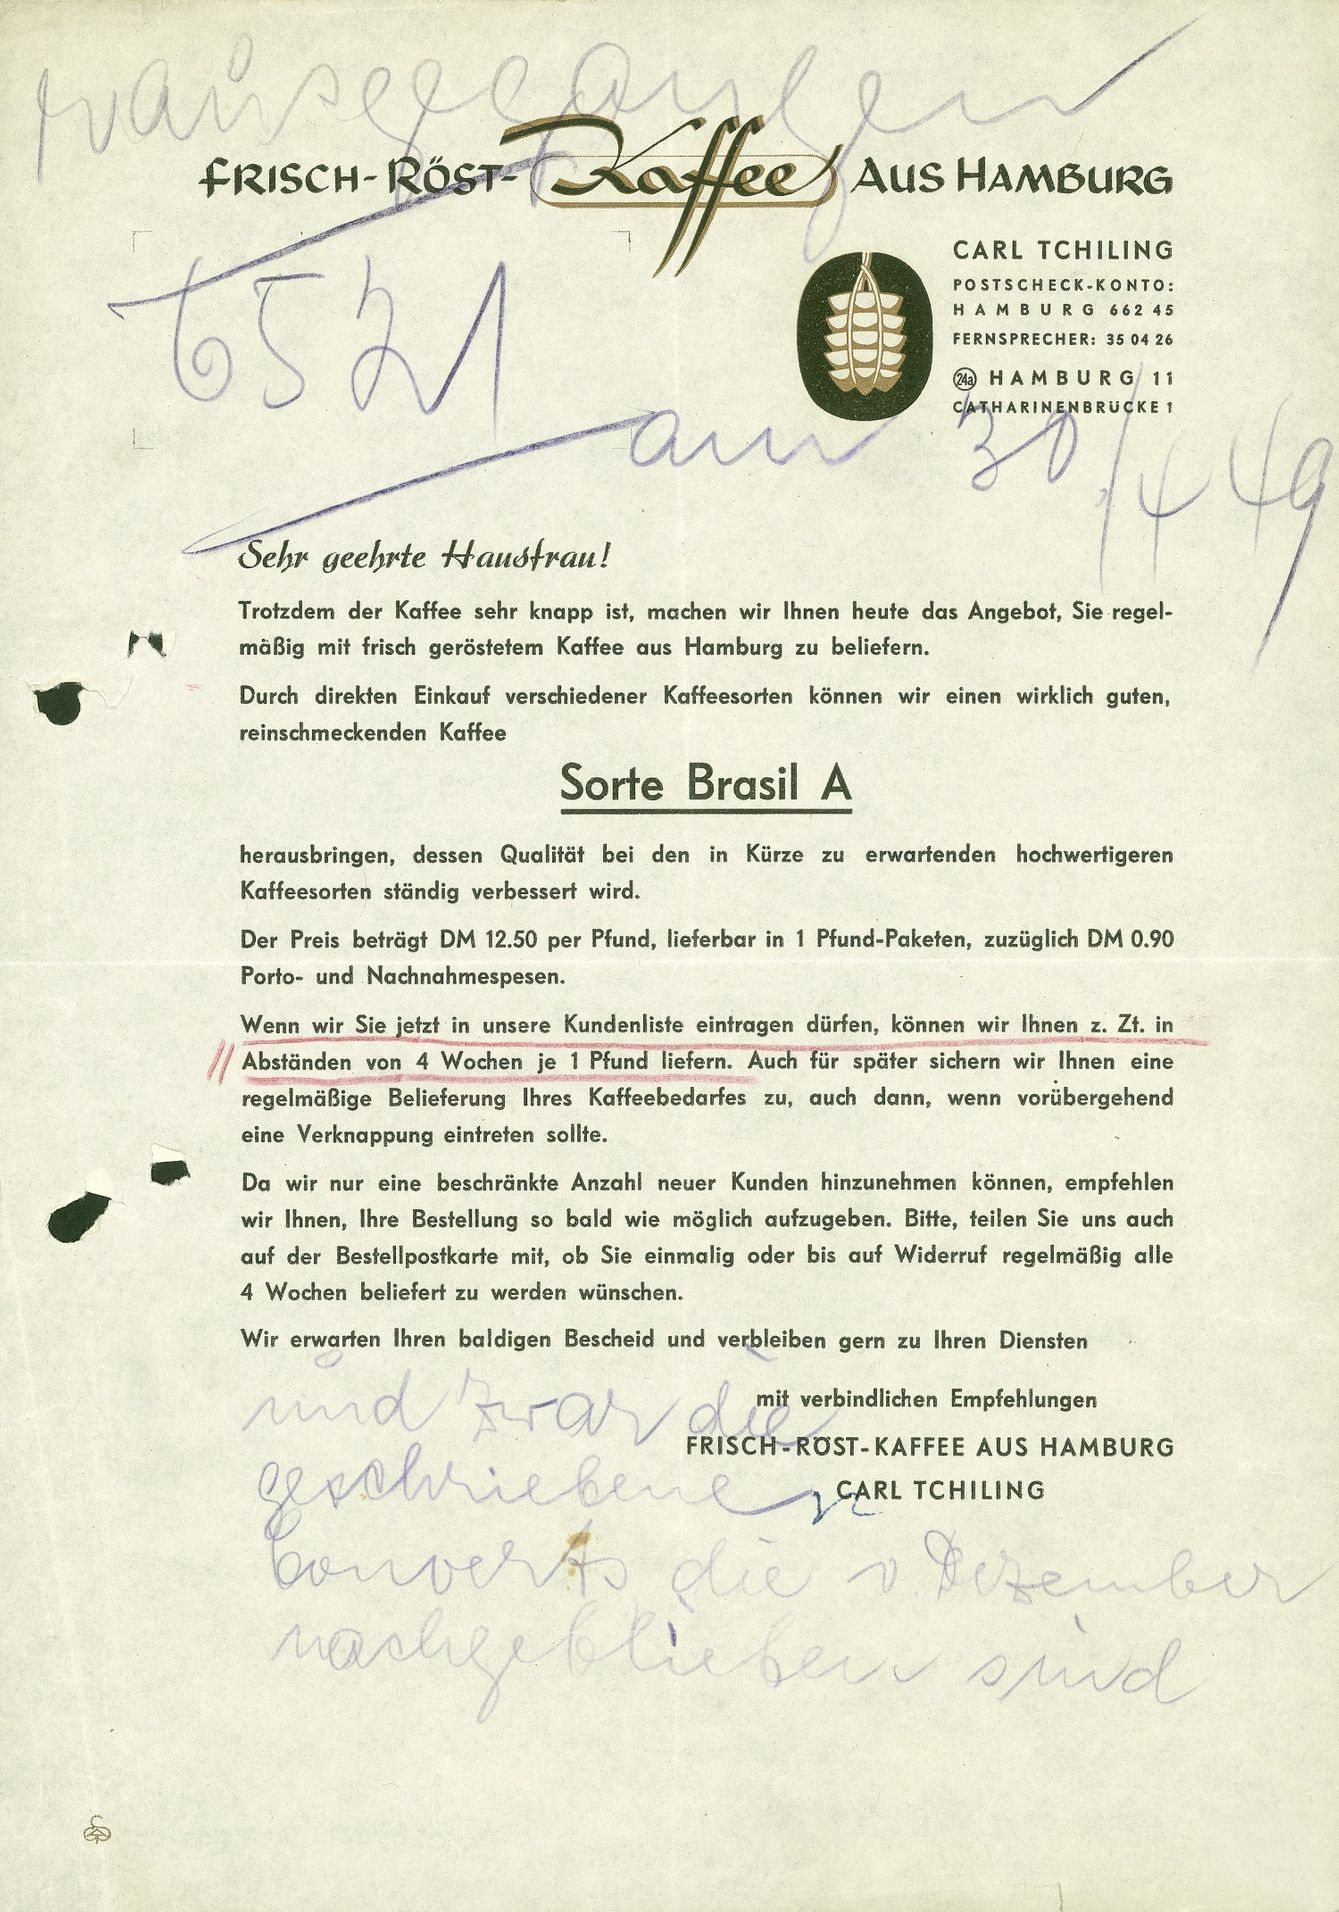 rausgegangen
FRISCH-RÖST-Kaffee AUS HAMBURG
CARL TCHILING
POSTSCHECK-KONTO:
HAMBURG 662 45
FERNSPRECHER: 35 04 26
24a HAMBURG 11
CATHARINENBRÜCKE 1
6521
am 30/4 49
Sehr geehrte Hausfrau!
Trotzdem der Kaffee sehr knapp ist, machen wir Ihnen heute das Angebot, Sie regel-
mäßig mit frisch geröstetem Kaffee aus Hamburg zu beliefern.
Durch direkten Einkauf verschiedener Kaffeesorten können wir einen wirklich guten,
reinschmeckenden Kaffee
Sorte Brasil A
herausbringen, dessen Qualität bei den in Kürze zu erwartenden hochwertigeren
Kaffeesorten ständig verbessert wird.
Der Preis beträgt DM 12.50 per Pfund, lieferbar in 1 Pfund-Paketen, zuzüglich DM 0.90
Porto- und Nachnahmespesen.
Wenn wir Sie jetzt in unsere Kundenliste eintragen dürfen, können wir Ihnen z. Zt. in
Abständen von 4 Wochen je 1 Pfund liefern. Auch für später sichern wir Ihnen eine
regelmäßige Belieferung Ihres Kaffeebedarfes zu, auch dann, wenn vorübergehend
eine Verknappung eintreten sollte.
Da wir nur eine beschränkte Anzahl neuer Kunden hinzunehmen können, empfehlen
wir Ihnen, Ihre Bestellung so bald wie möglich aufzugeben. Bitte, teilen Sie uns auch
auf der Bestellpostkarte mit, ob Sie einmalig oder bis auf Widerruf regelmäßig alle
4 Wochen beliefert zu werden wünschen.
Wir erwarten Ihren baldigen Bescheid und verbleiben gern zu Ihren Diensten
mit verbindlichen Empfehlungen
FRISCH-RÖST-KAFFEE AUS HAMBURG
CARL TCHILING
und zwar die
geschriebenen
Converts die v. Dezember
nachgeblieben sind